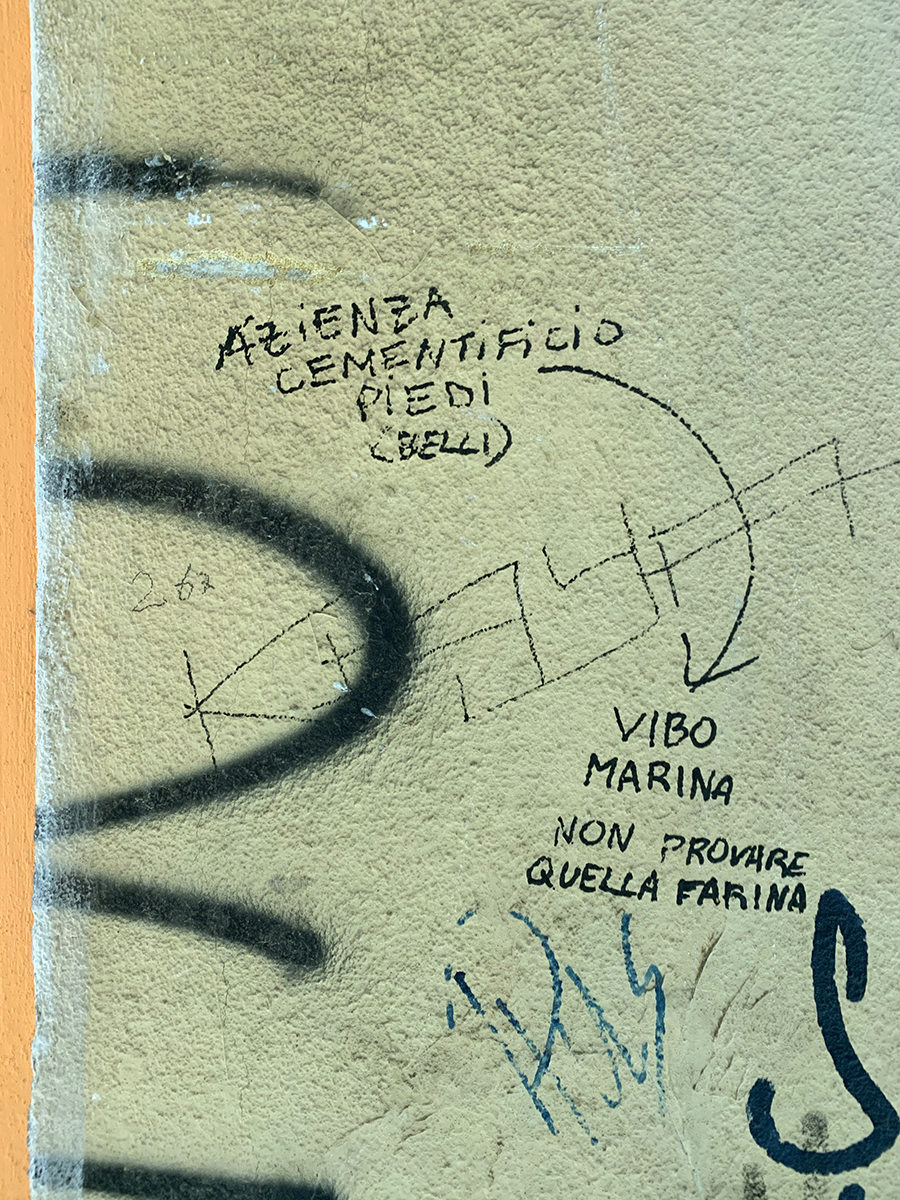 AZIENZA
CEMENTIFICIO
PIEDI
(BELLI)
VIBO
MARINA
NON PROVARE
QUELLA FARINA